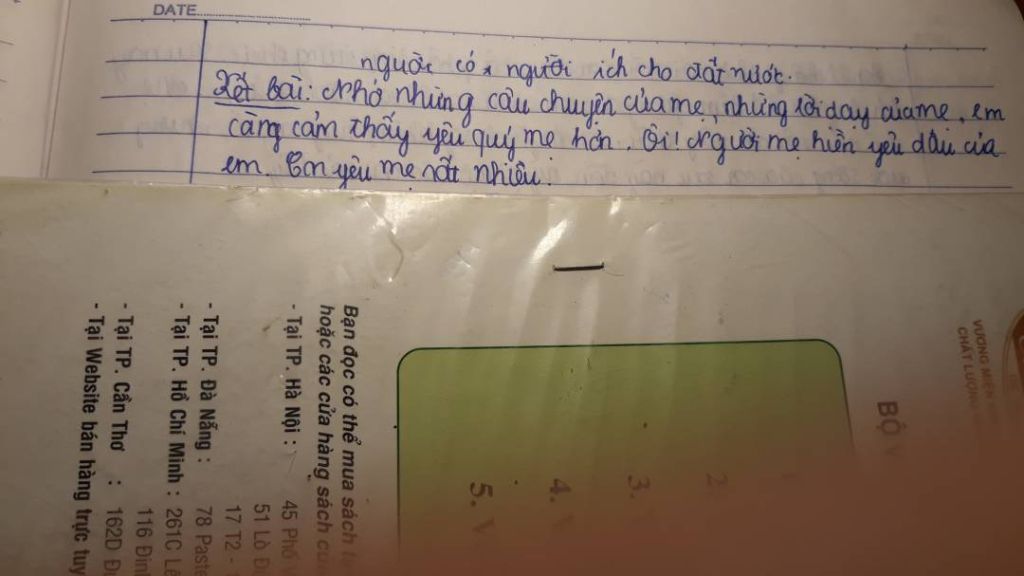 DATE
người có, người ích cho đất nước.
Kết bài: Nhớ những câu chuyện của mẹ, những lời dạy của mẹ, em
càng cảm thấy yêu quý mẹ hơn. Ôi! Người mẹ hiền yêu dấu của
em. Em yêu mẹ rất nhiều.
Bạn đọc có thể mua sách
hoặc các cửa hàng sách
- Tại TP. Hà Nội : 45 Phố
51 Lò
17 T2 -
- Tại TP. Đà Nẵng : 78
- Tại TP. Hồ Chí Minh : 261C
116
- Tại TP. Cần Thơ : 162D
- Tại Website bán hàng trực
VƯƠNG MIỆN
CHẤT LƯỢNG
BỘ
2
3.
4.
5. V